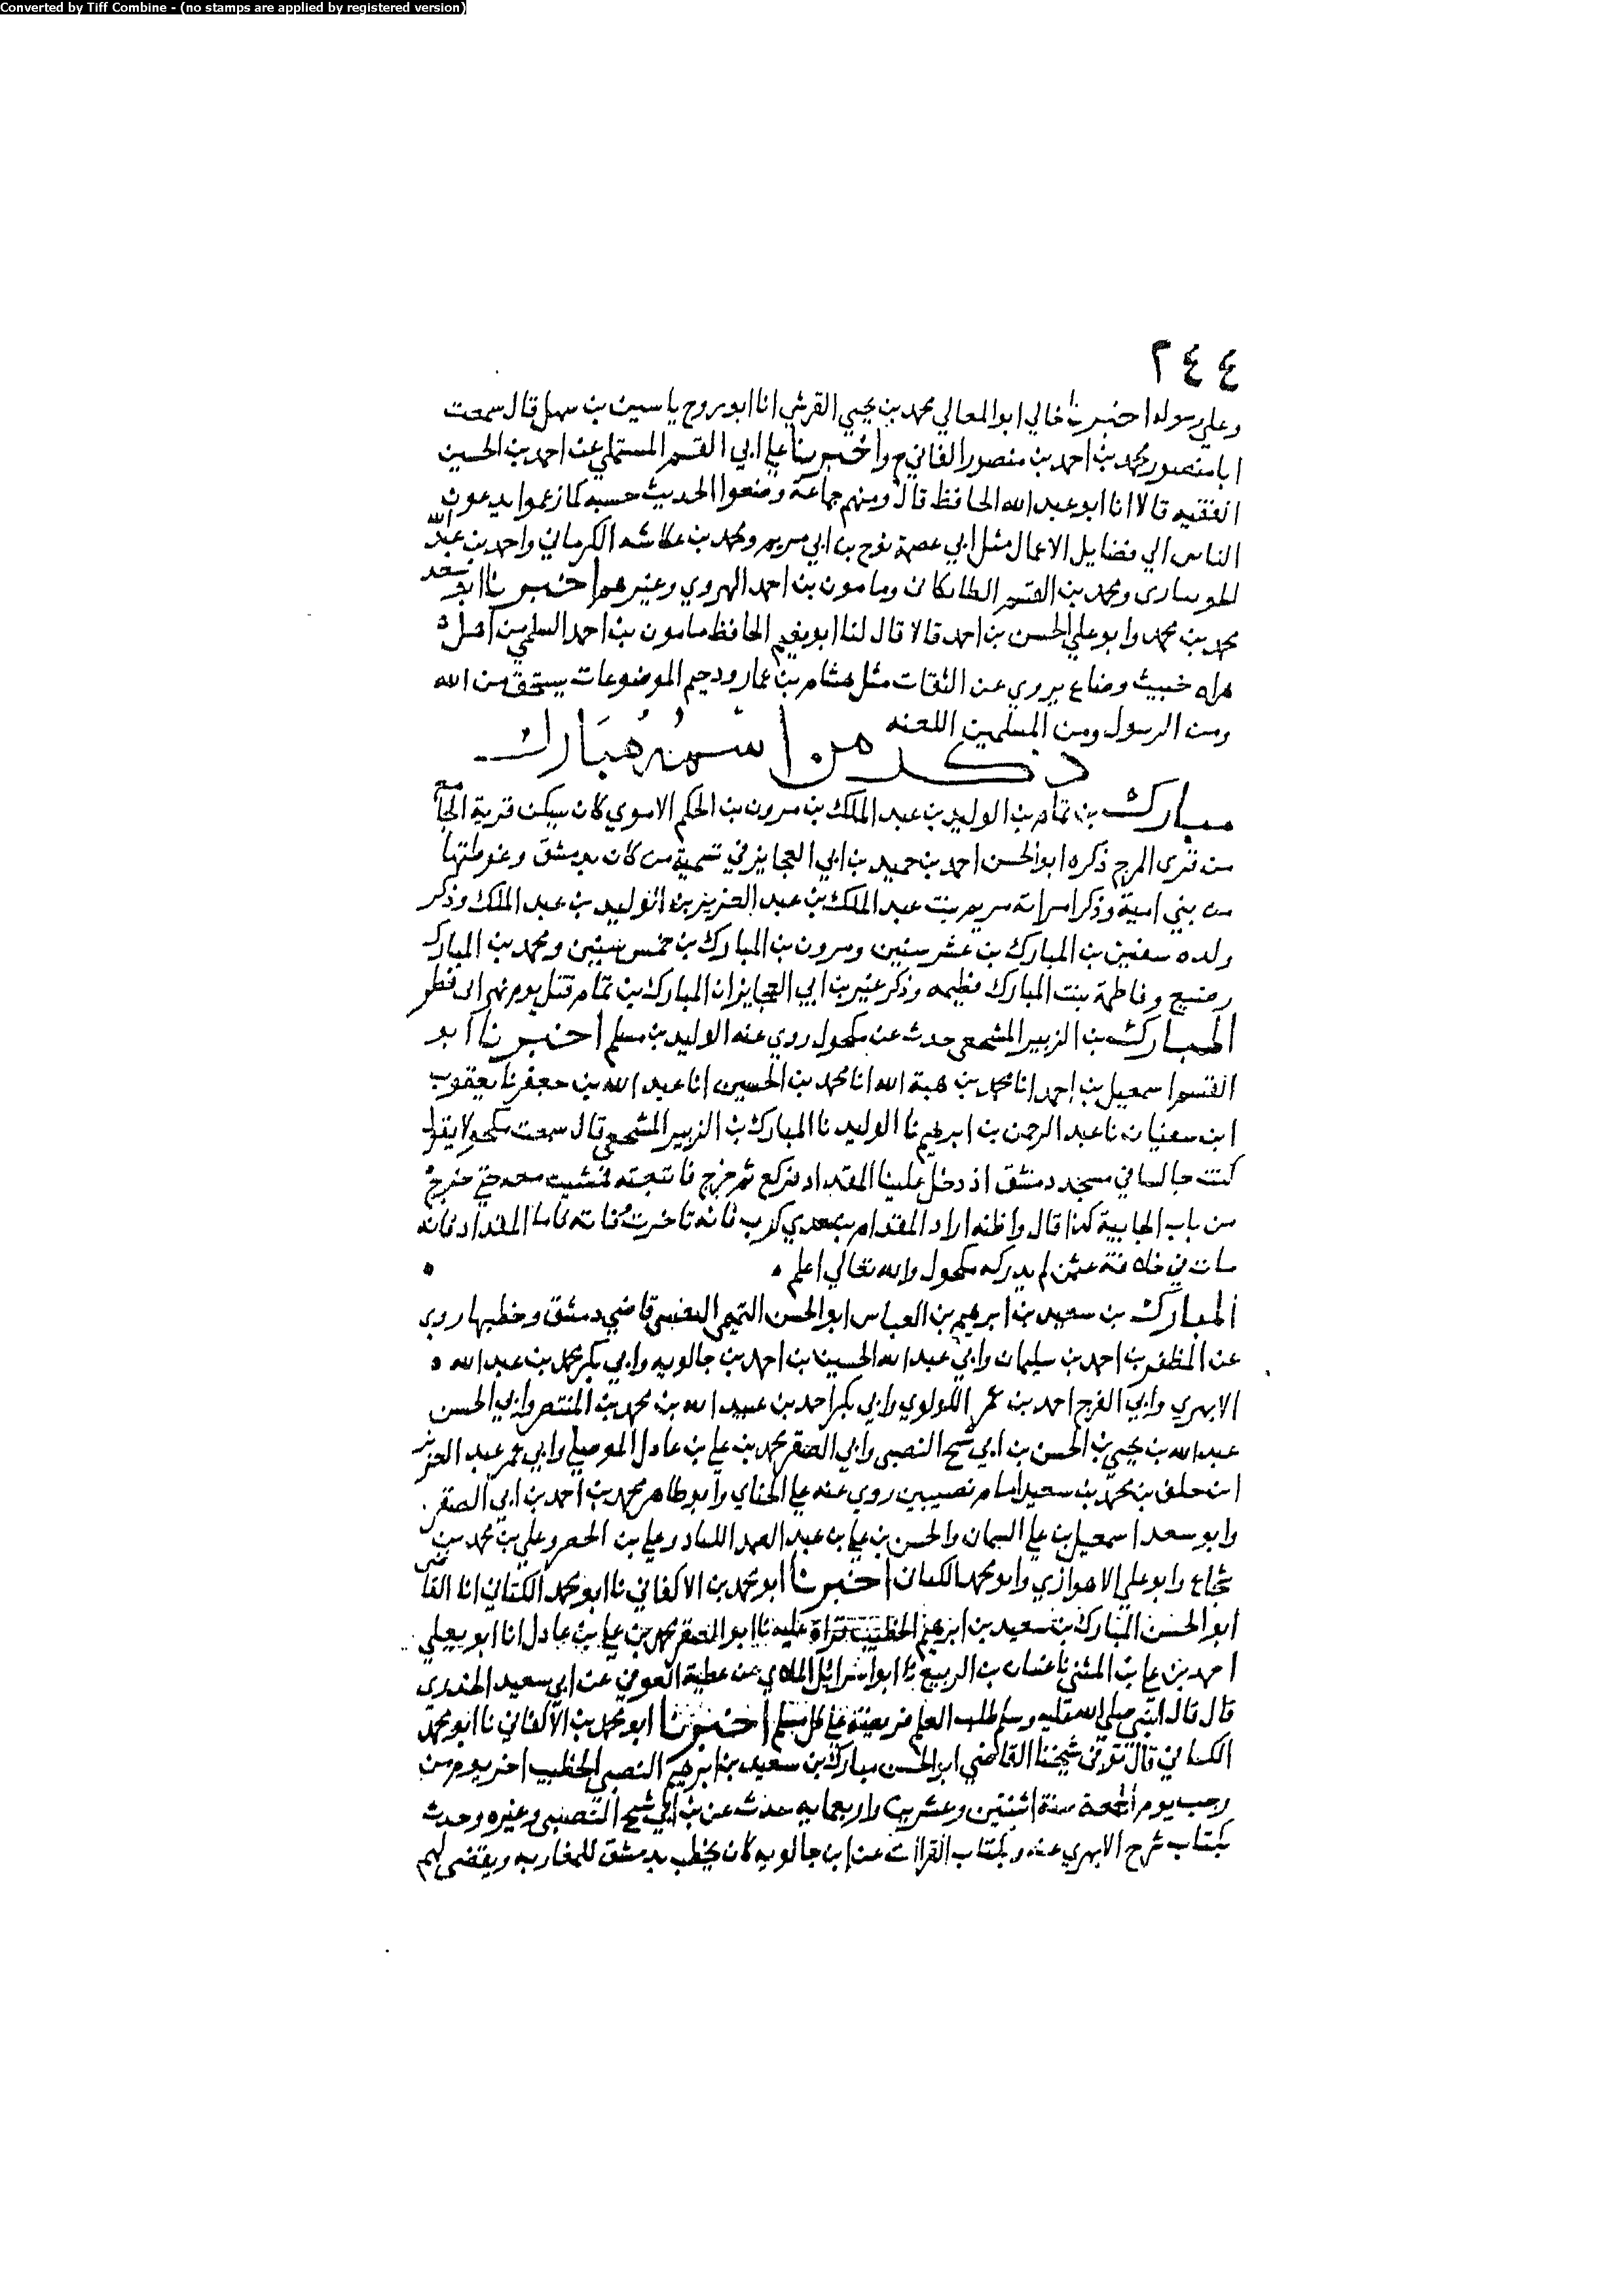 Converted by Tiff Combine - (no stamps are applied by registered version)
٢٤٤
وعلي رسوله اخبرنا خالي ابو المعالي محمد بن يحيي القرشي انا ابو روح ياسين بن سهل قال سمعت
ابا منصور محمد بن احمد بن منصور القايني ح واخبرنا علي ابي القسم المستملي عن احمد بن الحسين
الفقيه قالا انا ابو عبد الله الحافظ قال ومنهم جماعة وضعوا الحديث حسبه كما زعموا يدعون
الناس الي فضايل الاعمال مثل ابي عصمة نوح بن ابي مريم ومحمد بن عكاشه الكرماني واحمد بن عبد الله
الجوساري ومحمد بن القسم الطايكاني ومامون بن احمد الهروي وغيرهم اخبرنا ابو سعد
محمد بن محمد وابو علي الحسن بن احمد قالا قال لنا ابو نعيم الحافظ مامون بن احمد السلمي من اهل
هراه خبيث وضاع يروي عن الثقات مثل هشام بن عمار ودحيم الموضوعات يستحق من الله
ومن الرسول ومن المسلمين اللعنه
ذكر من اسمه مبارك
مبارك بن تمام بن الوليد بن عبد الملك بن مرون بن الحكم الاموي كان يسكن قرية الجامع
من قري المرج ذكره ابو الحسن احمد بن حميد بن ابي العجايز في تسمية من كان بدمشق وغوطتها
من بني امية وذكر امراته مريم بنت عبد الملك بن عبد العزيز بن الوليد بن عبد الملك وذكر
ولده سفين بن المبارك بن عشر سنين ومرون بن المبارك بن خمس سنين ومحمد بن المبارك
رضيع وفاطمة بنت المبارك فطيمه وذكر غير بن ابي العجايز ان المبارك بن تمام قتل يوم نهر ابي فطر
المبارك بن الزبير المشجعي حدث عن مكحول روي عنه الوليد بن مسلم اخبرنا ابو
القسم اسمعيل بن احمد انا محمد بن هبة الله انا محمد بن الحسين انا عبد الله بن جعفر نا يعقوب
ابن سفيان نا عبد الرحمن بن ابرهيم نا الوليد نا المبارك بن الزبير المشجعي قال سمعت مكحولا يقول
كنت جالسا في مسجد دمشق اذ دخل علينا المقداد فركع ثم خرج فاتبعته فمشيت معه حتي خرج
من باب الجابية كذا قال واظنه اراد المقدام بن معدي كرب فانه تاخرت وفاته فاما المقداد فانه
مات في خلافة عثمن لم يدركه مكحول والله تعالي اعلم
المبارك بن سعيد بن ابرهيم بن العباس ابو الحسن التميمي النصيبي قاضي دمشق وخطيبها روي
عن المظفر بن احمد بن سليمان وابي عبد الله الحسين بن احمد بن جالويه وابي بكر محمد بن عبد الله
الابهري وابي الفرج احمد بن عمر اللولوي وابي بكر احمد بن عبيد الله بن محمد بن المنتصر وابي الحسن
عبد الله بن يحيي بن الحسن بن ابي شيح النصيبي وابي الصقر محمد بن علي بن عادل الموصلي وابي عمر عبد العزيز
ابن خلف بن محمد بن سعيد امام نصيبين روي عنه علي الحناي وابو طاهر محمد بن احمد بن ابي الصقر
وابو سعد اسمعيل بن علي السمان والحسن بن علي بن عبد الصمد اللباد وعلي بن الخضر وعلي بن محمد بن
شجاع وابو علي الاهوازي وابو محمد الكتاني اخبرنا ابو محمد بن الاكفاني نا ابو محمد الكتاني انا القاضي
ابو الحسن المبارك بن سعيد بن ابرهيم الخطيب قراة عليه نا ابو الصقر محمد بن علي بن عادل انا ابو يعلي
احمد بن علي بن المثني نا غسان بن الربيع نا ابو اسرائيل الملاي عن عطية العوفي عن ابي سعيد الخدري
قال قال النبي صلي الله عليه وسلم طلب العلم فريضة علي كل مسلم اخبرنا ابو محمد بن الاكفاني نا ابو محمد
الكتاني قال توفي شيخنا القاضي ابو الحسن مبارك بن سعيد بن ابرهيم النصيبي الخطيب اخر يوم من
رجب يوم الجمعة سنة اثنتين وعشرين واربعمايه حدث عن بن ابي شيح النصيبي وغيره وحدث
بكتاب شرح الابهري عنه وبكتاب القراات عن ابن جالويه كان يخطب بدمشق للمغاربه ويقضي لهم